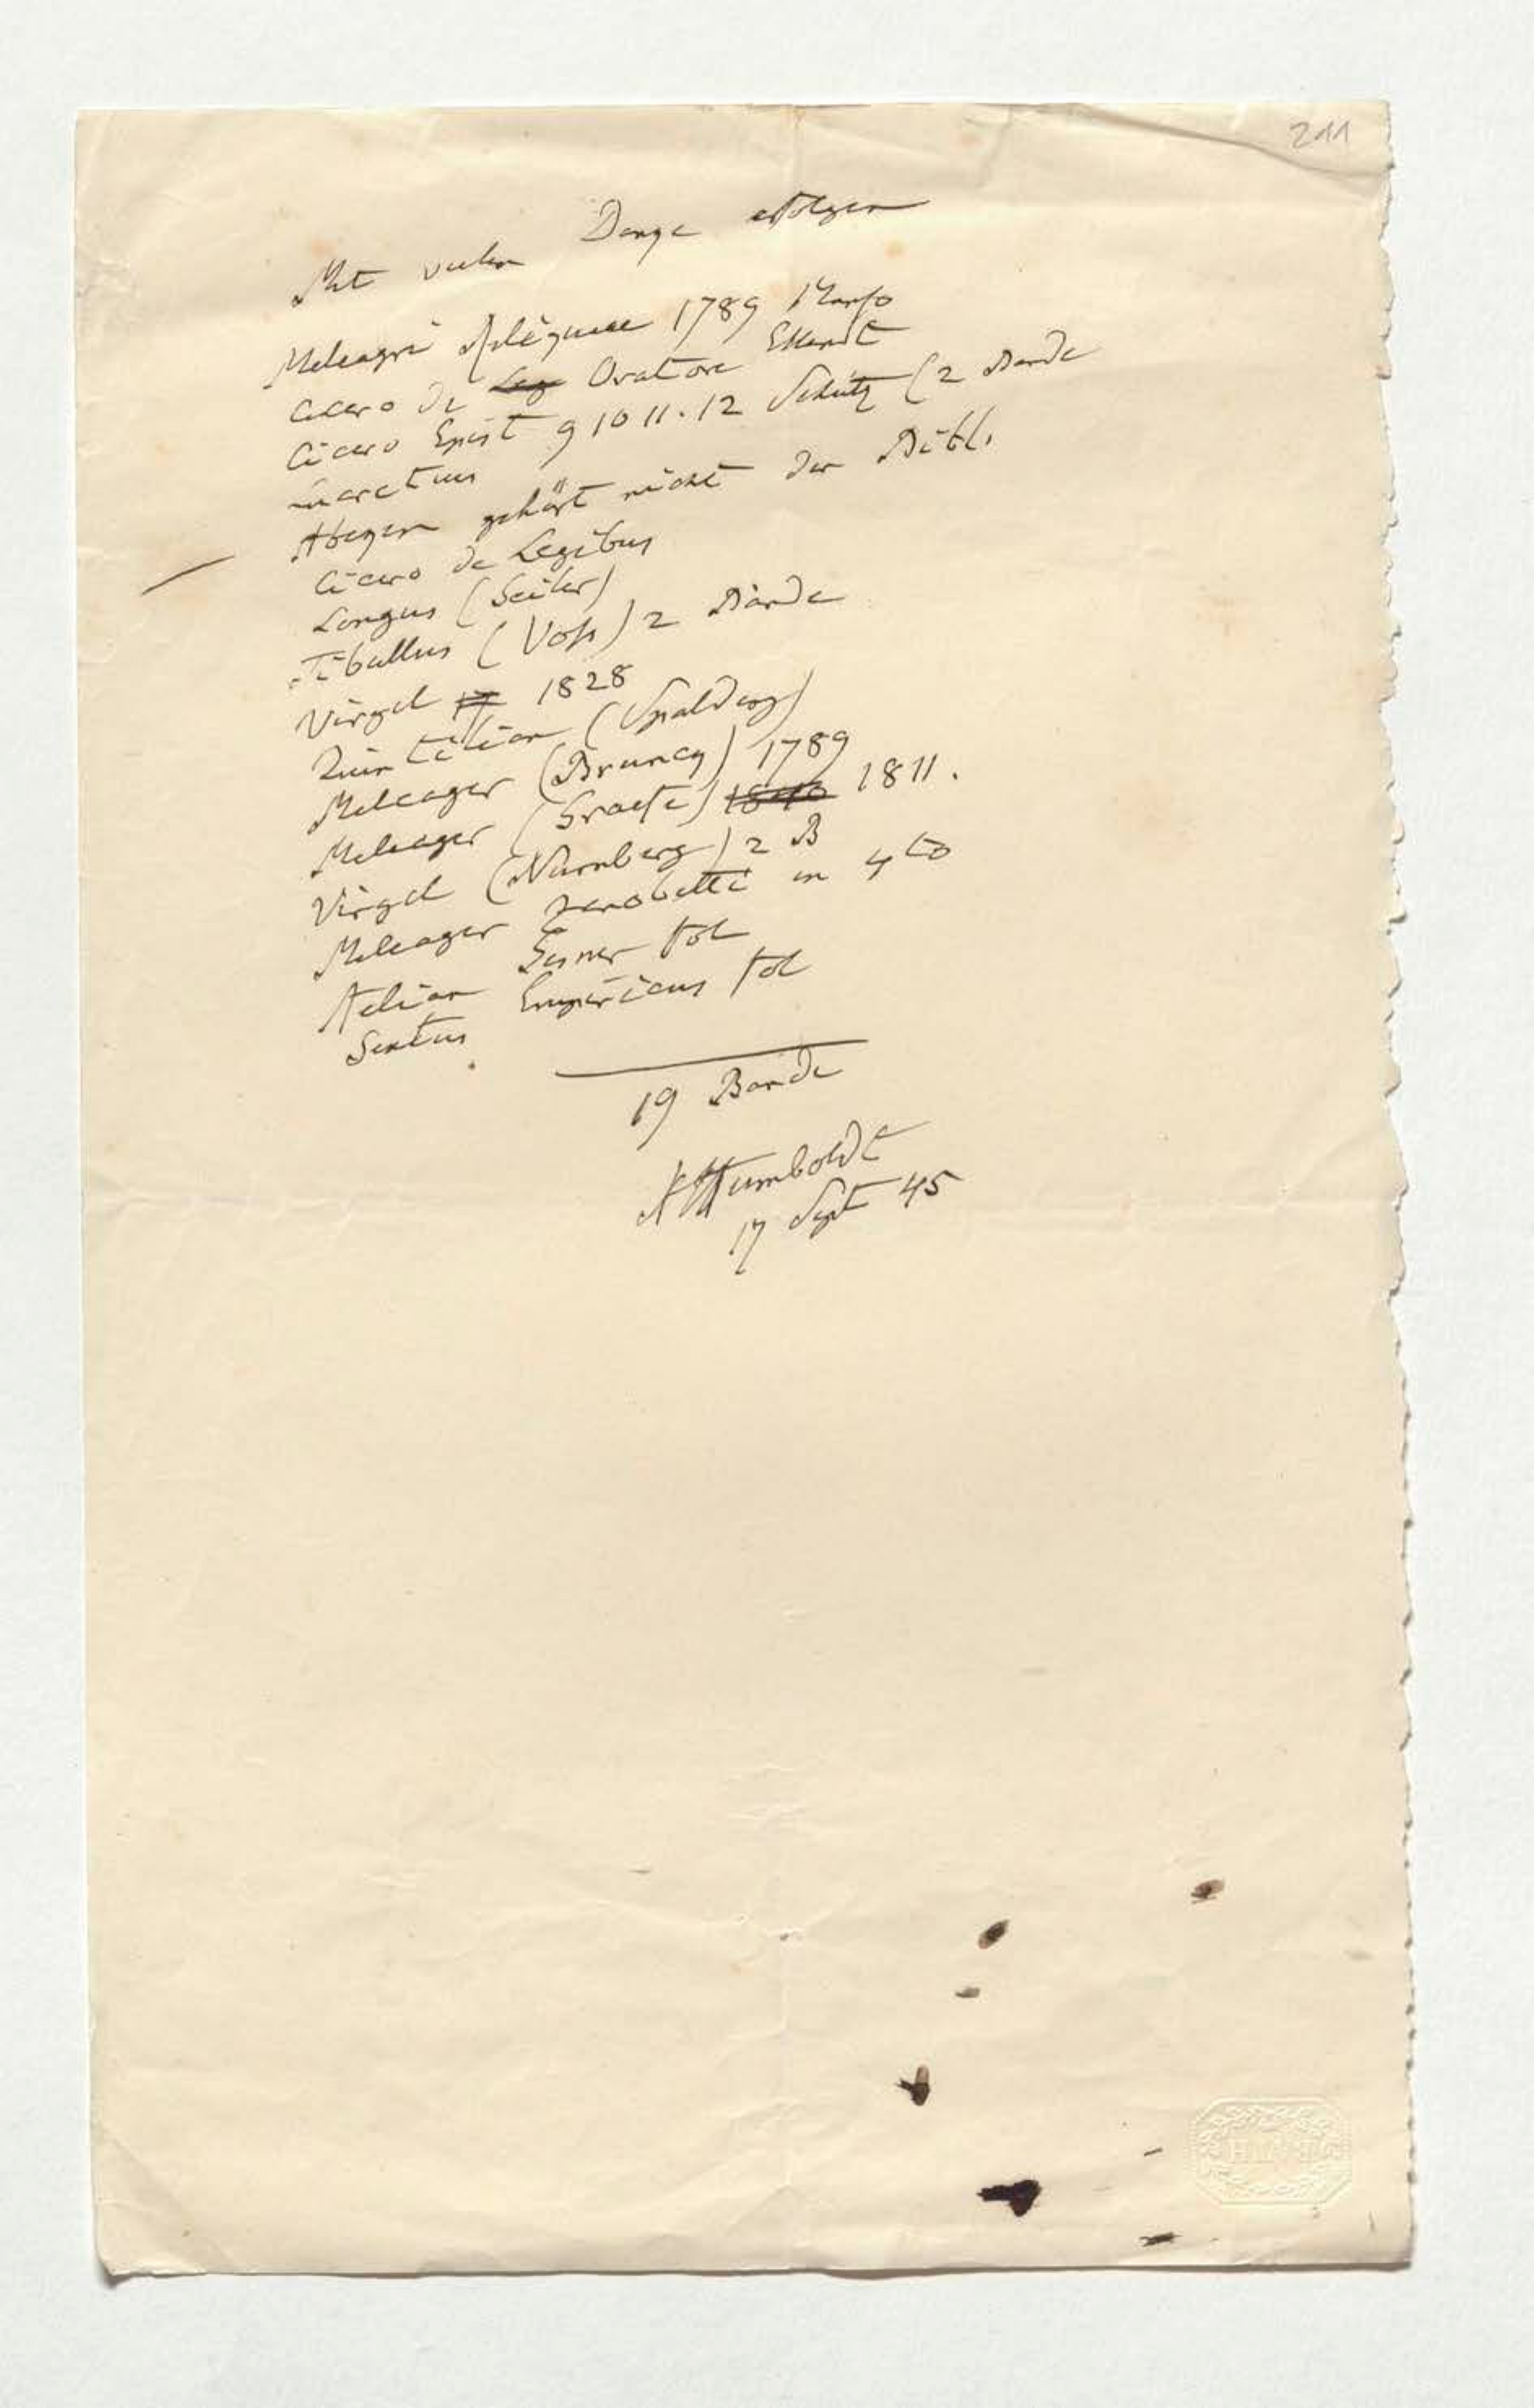 211
Mit vielem Danke erfolgen
Meleagri Reliquiae 1789 Manso
Cicero de Leg Oratore Ellendt
Cicero Epist 9 10 11. 12 Schütz (2 Bände
Lucretius
gehört nicht der Bibl.
Cicero de Legibus
Longus (Seiler)
Tibullus (Voss) 2 Bände
Virgil 17 1828
Quintilian (Spalding)
Meleager (Brunck) 1789
Meleager (Graefe) 1810 1811.
Virgil (Nürnberg) 2 B
Meleager Zenobetti in 4to
Aelian Gesner fol
Sextus Empiricus fol
19 Bände
AHumboldt
17 Sept 45